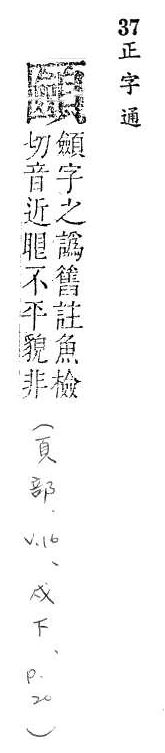 37 正字通
顩字之譌舊註魚檢
切音近不平貌非
(頁部、v.16、戌下、p.20)